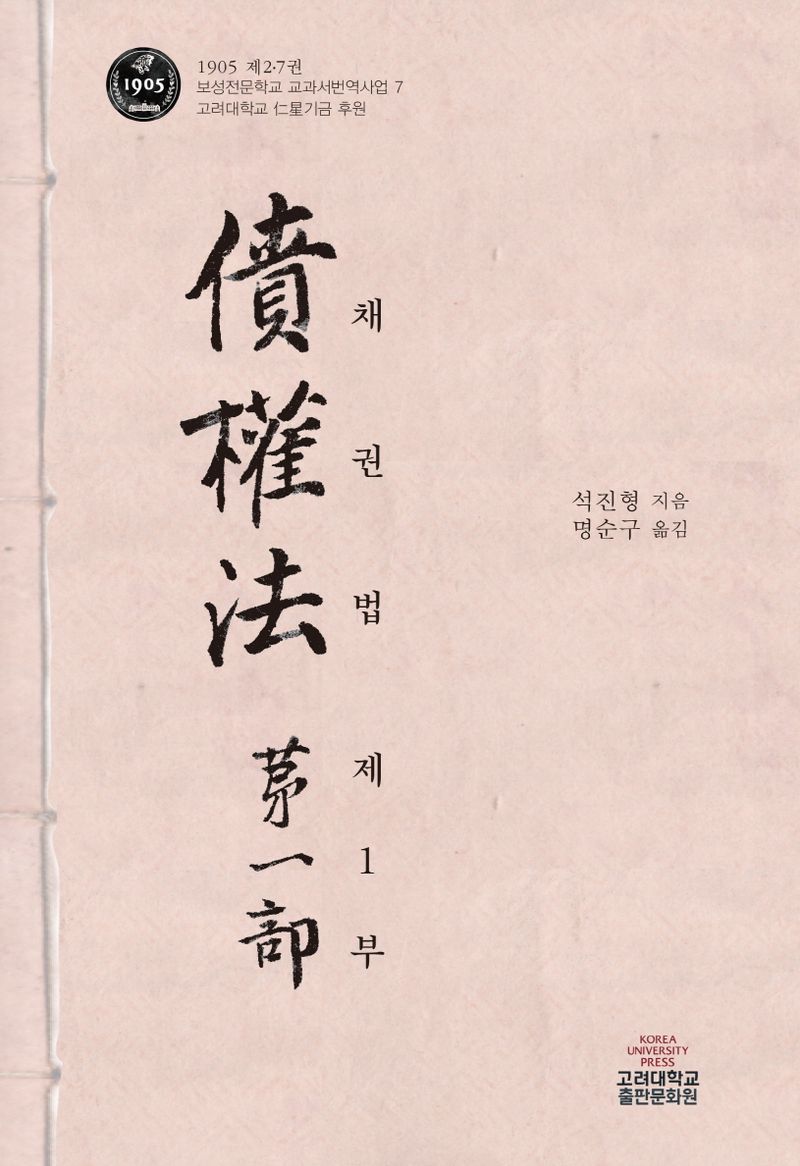 1905
1905 제2·7권
보성전문학교 교과서번역사업 7
고려대학교 仁星기금 후원
債權法 第一部
채권법 제1부
석진형 지음
명순구 옮김
KOREA
UNIVERSITY
PRESS
고려대학교
출판문화원